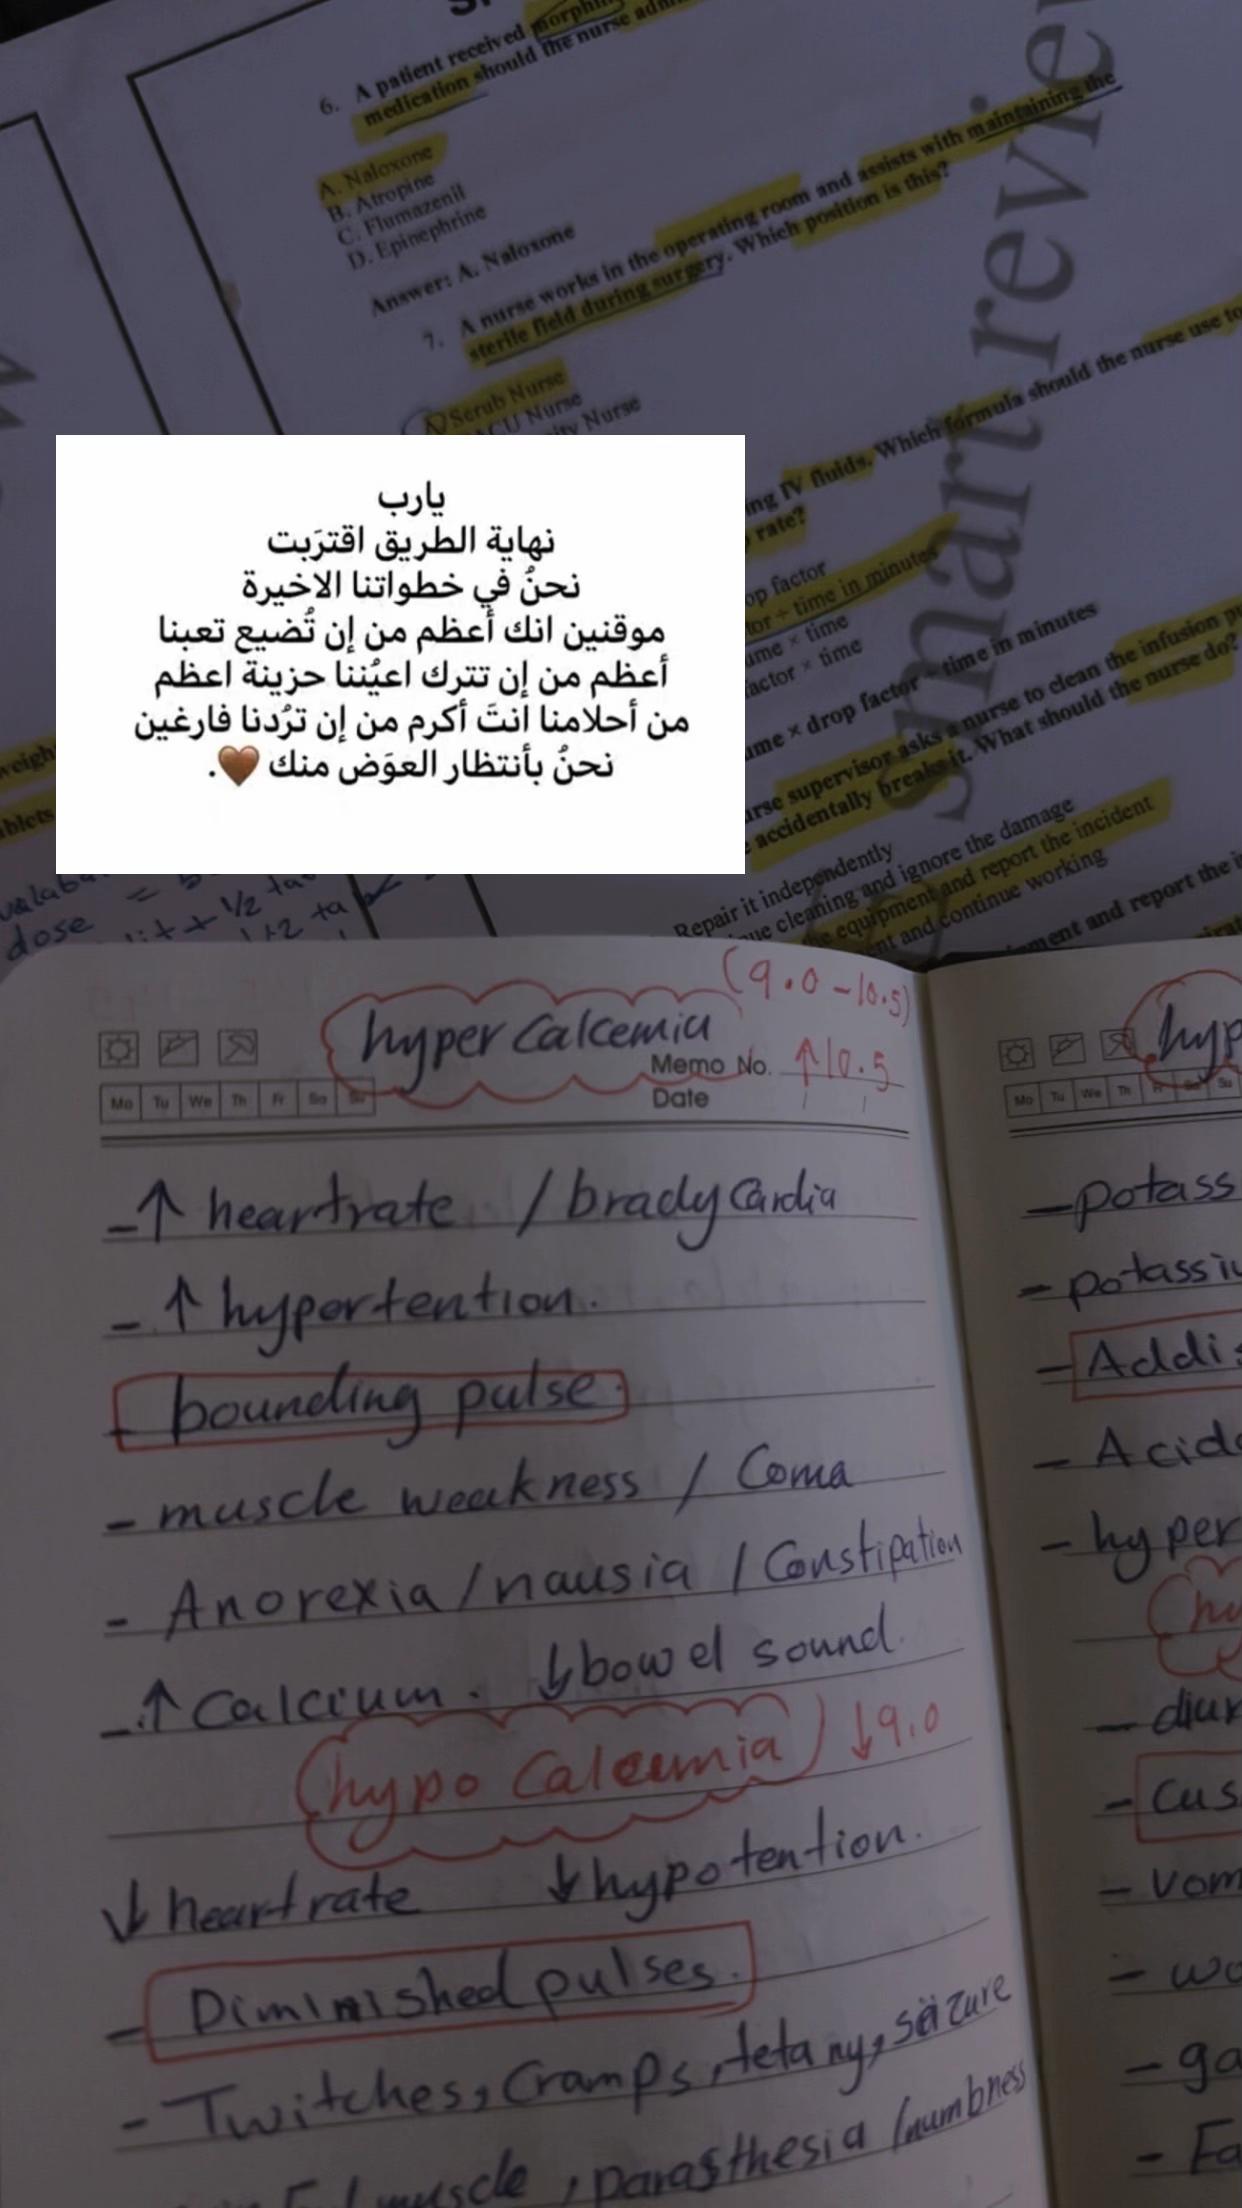 6. A patient received morphin
medication should the nurse adm
A. Naloxone
B. Atropine
C. Flumazenil
D. Epinephrine
Answer: A. Naloxone
7. A nurse works in the operating room and assists with maintaining the
sterile field during surgery. Which position is this?
A Scrub Nurse
ACU Nurse
ity Nurse
ing IV fluids. Which formula should the nurse use to
rate?
op factor
tor ÷ time in minutes
ume × time
factor × time
ume × drop factor ÷ time in minutes
urse supervisor asks a nurse to clean the infusion p
accidentally breaks it. What should the nurse do?
Repair it independently
ue cleaning and ignore the damage
the equipment and report the incident
ent and continue working
pment and report the i
Smart review
weigh
ablets
dose
= 5
1/2 ta
يارب
نهاية الطريق اقترَبت
نحنُ في خطواتنا الاخيرة
موقنين انك أعظم من إن تُضيع تعبنا
أعظم من إن تترك اعيُننا حزينة اعظم
من أحلامنا انتَ أكرم من إن ترُدنا فارغين
نحنُ بأنتظار العوَض منك 🤎.
(9.0 - 10.5)
hyper Calcemia
Memo No. ↑10.5
Date
Mo Tu We Th Fr Sa Su
- ↑ heartrate / bradycardia
- ↑ hypertention.
- bounding pulse.
- muscle weakness / Coma
- Anorexia / nausia / Constipation
- ↑ Calcium. ↓ bowel sound.
(hypo Calcemia) ↓9.0
↓ heartrate ↓ hypotention.
- Diminished pulses.
- Twitches, Cramps, tetany, seizure
muscle, parasthesia / numbness
hyp
Mo Tu We Th Fr Sa Su
- potass
- potassiu
- Addis
- Acido
- hyper
(hy
- diur
- Cus
- vom
- wo
- ga
- Fa